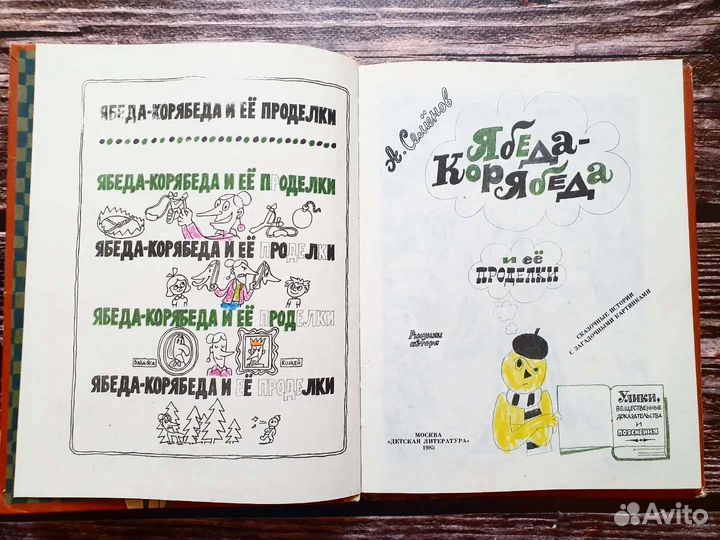 ЯБЕДА-КОРЯБЕДА И ЕЁ ПРОДЕЛКИ
ЯБЕДА-КОРЯБЕДА И ЕЁ ПРОДЕЛКИ
ЯБЕДА-КОРЯБЕДА И ЕЁ ПРОДЕЛКИ
ЯБЕДА-КОРЯБЕДА И ЕЁ ПРОДЕЛКИ
БАБА-ЯГА
КОЩЕЙ
ЯБЕДА-КОРЯБЕДА И ЕЁ ПРОДЕЛКИ
А. Семёнов
Ябеда-
Корябеда
и её
ПРОДЕЛКИ
Рисунки
автора
СКАЗОЧНЫЕ ИСТОРИИ
С ЗАГАДОЧНЫМИ КАРТИНКАМИ
Улики,
ВЕЩЕСТВЕННЫЕ
ДОКАЗАТЕЛЬСТВА
И
ПОЯСНЕНИЯ
МОСКВА
«ДЕТСКАЯ ЛИТЕРАТУРА»
1985
Avito